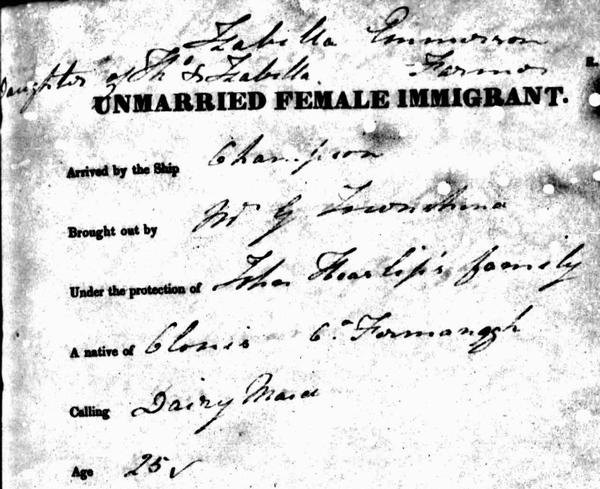 Izabella Emmerson
Daughter of Thos & Izabella Farmer
UNMARRIED FEMALE IMMIGRANT.
Arrived by the Ship Champion
Brought out by G
Under the protection of family
A native of Clonis Co Formanagh
Calling Dairy Maid
Age 25 √